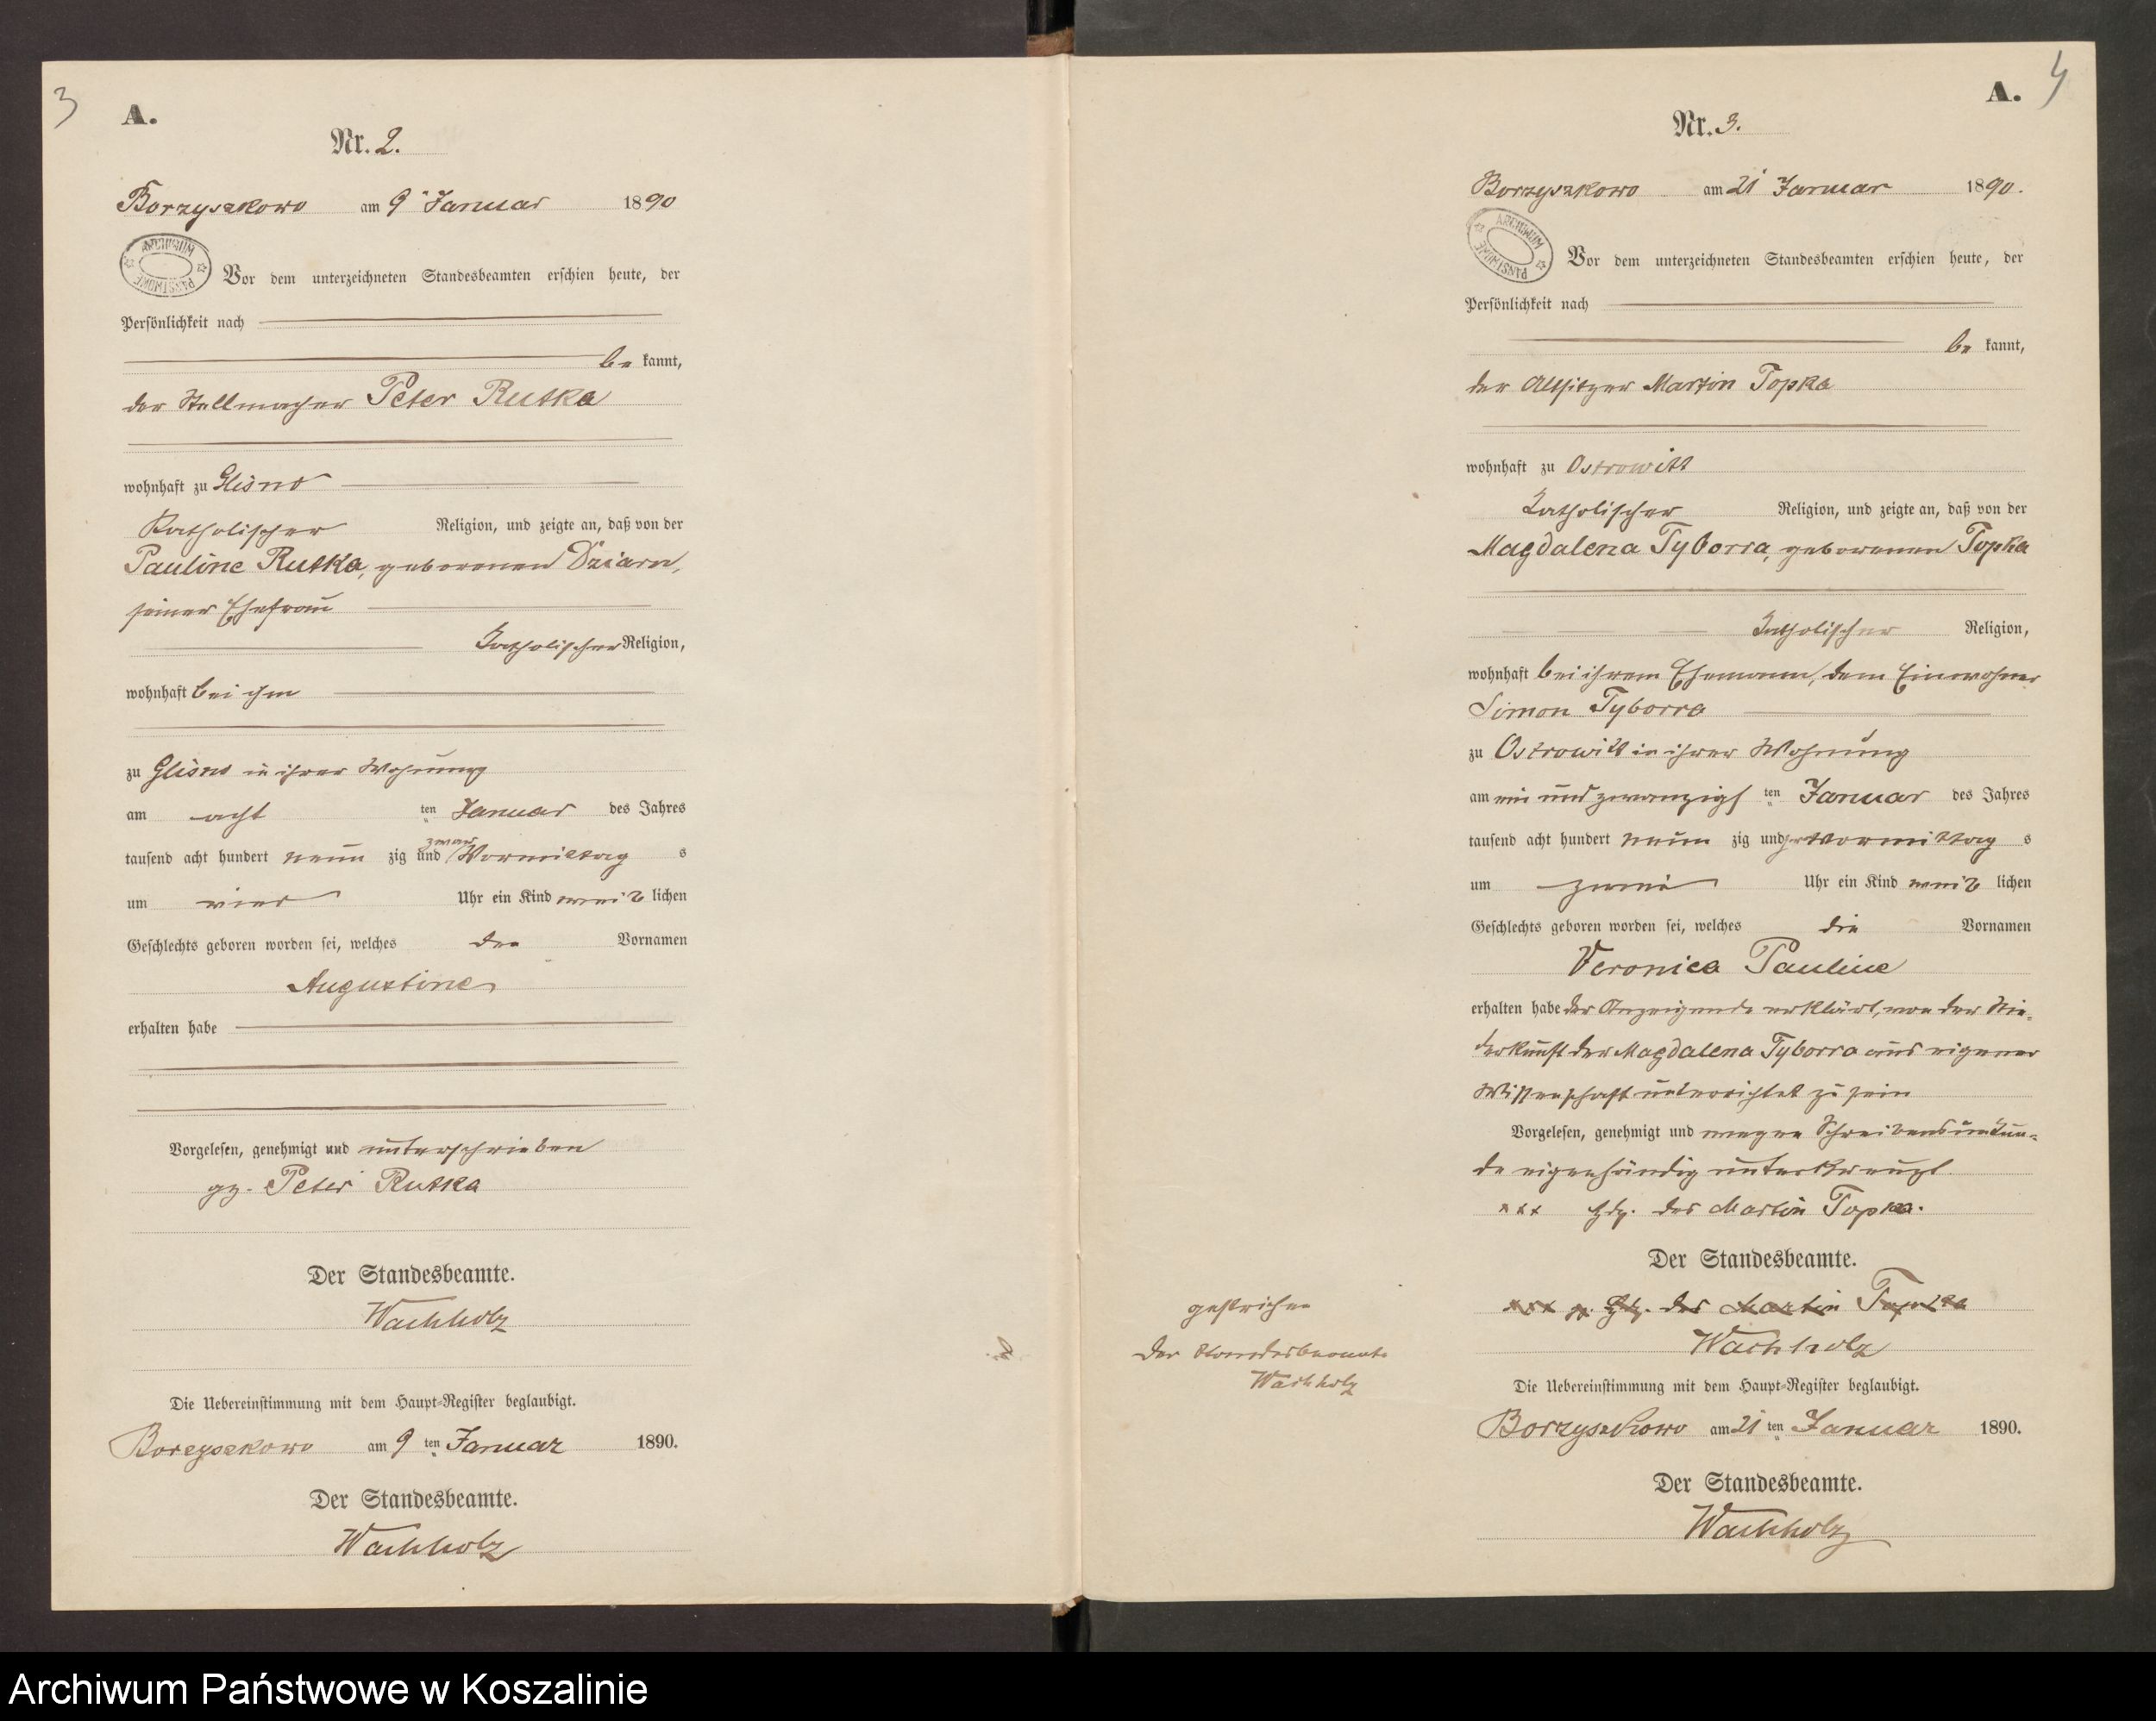 3
A.
Nr. 2.
Borzyszkowo am 9ᵗ Januar 1890
ARCHIWUM PAŃSTWOWE
Vor dem unterzeichneten Standesbeamten erschien heute, der
Persönlichkeit nach
be kannt,
der Stellmacher Peter Rutka
wohnhaft zu Glisno
katholischer Religion, und zeigte an, daß von der
Pauline Rutka, geborenen Dziarn,
seiner Ehefrau
katholischer Religion,
wohnhaft bei ihm
zu Glisno in ihrer Wohnung
am acht ten Januar des Jahres
tausend acht hundert neun zig und zwar Vormittag s
um vier Uhr ein Kind weib lichen
Geschlechts geboren worden sei, welches den Vornamen
Augustine
erhalten habe
Vorgelesen, genehmigt und unterschrieben
gz. Peter Rutka
Der Standesbeamte.
Wachholz
Die Uebereinstimmung mit dem Haupt-Register beglaubigt.
Borzyszkowo am 9 ten Januar 1890.
Der Standesbeamte.
Wachholz
A. 4
Nr. 3.
Borzyszkowo am 21 Januar 1890.
ARCHIWUM PAŃSTWOWE
Vor dem unterzeichneten Standesbeamten erschien heute, der
Persönlichkeit nach
be kannt,
der Altsitzer Martin Topka
wohnhaft zu Ostrowitt
katholischer Religion, und zeigte an, daß von der
Magdalena Tyborra, geborenen Topka
katholischer Religion,
wohnhaft bei ihrem Ehemann, dem Einwohner
Simon Tyborra
zu Ostrowitt in ihrer Wohnung
am ein und zwanzigs ten Januar des Jahres
tausend acht hundert neun zig und zwar Vormittag s
um zwei Uhr ein Kind weib lichen
Geschlechts geboren worden sei, welches die Vornamen
Veronica Pauline
erhalten habe der Anzeigende erklärt, von der Nie-
derkunft der Magdalena Tyborra aus eigener
Wissenschaft unterrichtet zu sein
Vorgelesen, genehmigt und wegen Schreibensunkun-
de eigenhändig unterkreuzt
xxx Hdz. des Martin Topka.
Der Standesbeamte.
xxx gz. Hdz. des Martin Topka
Wachholz
gestrichen
Der Standesbeamte
Wachholz
Die Uebereinstimmung mit dem Haupt-Register beglaubigt.
Borzyszkowo am 21 ten Januar 1890.
Der Standesbeamte.
Wachholz
Archiwum Państwowe w Koszalinie